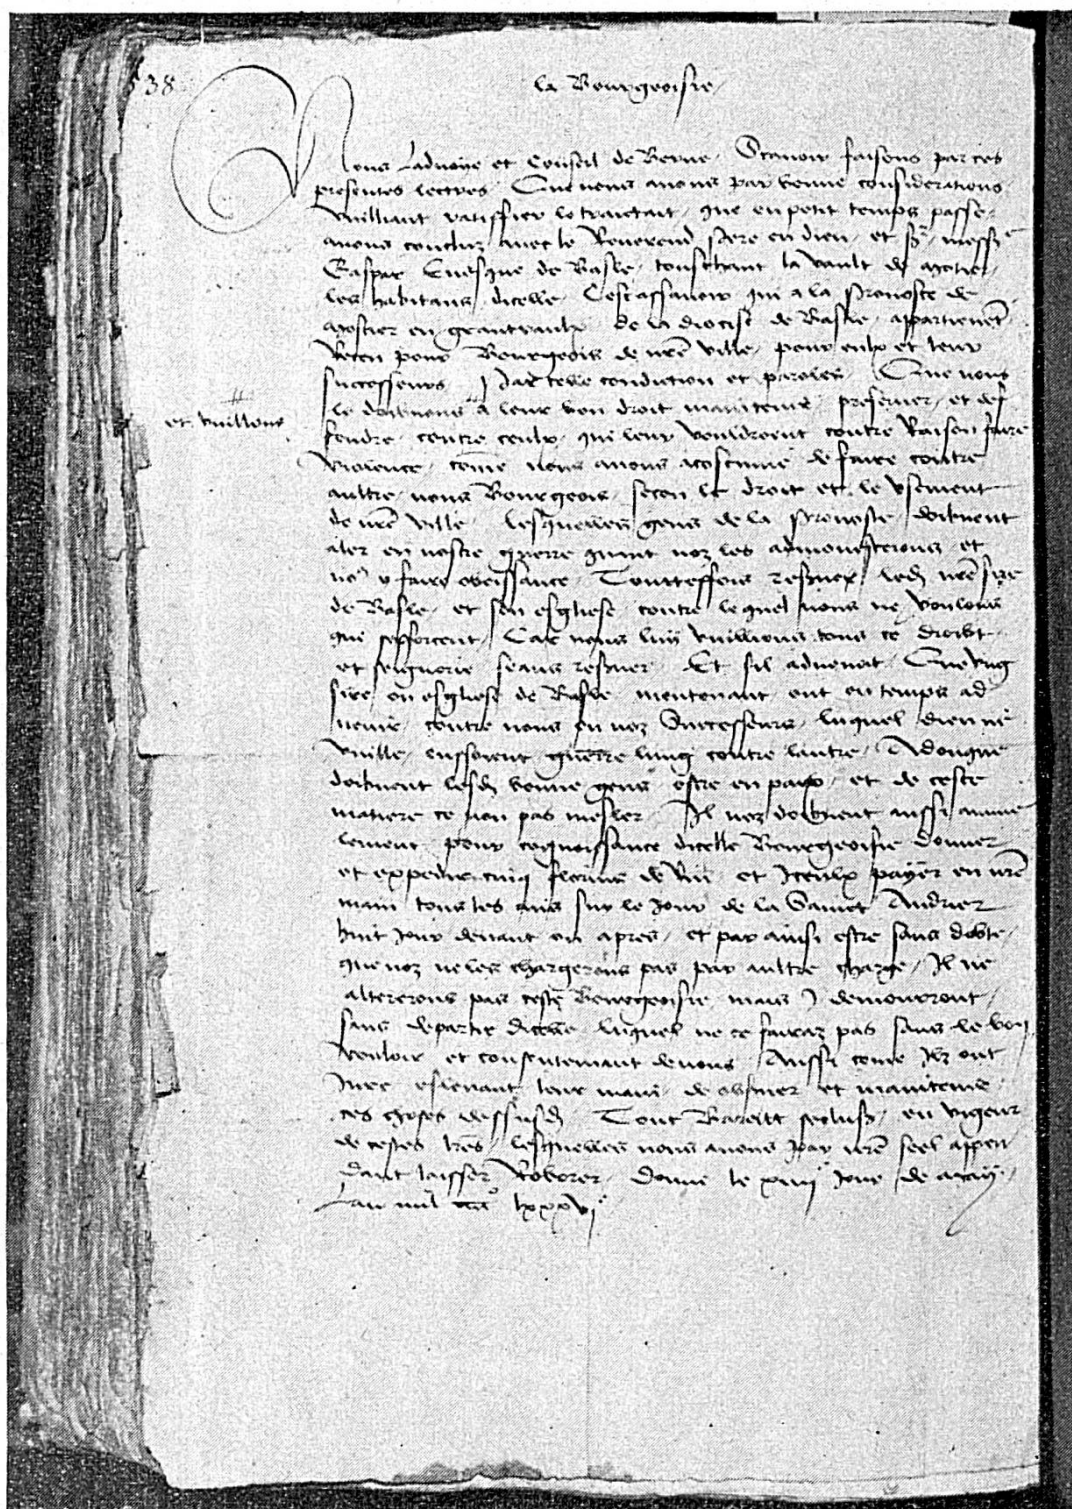 538
la Bourgeoisie
Nous Ladvoye et Conseil de Berne Scavoir faisons par ces
presentes lectres Que nous avons par bonne considerations
vuilliant ratiffier le traictait que en petit temps passe
avons concluz avec le Reverend pere en dieu et
Gaspar Evesque de Basle touschant la vault de
les habitans dicelle Cest assavoir qui a la prevoste de
Mostier en grantvaulx de la diocise de Basle appartienent
pour Bourgeois de nre ville pour eulx et leur
successeurs Par telle condiction et paroles Que nous
et vuillons
le doibvons a leur bon droit maintenir preserver et def
fendre contre ceulx que leur vouldroient contre Raison faire
violence come nous avons acostumé de faire contre
aultre nous Bourgeois secon le droit et le usement
de nre ville Lesquelles gens de la prevoste doibvent
aler en nostre guerre quint noz les admonesterons et
no y faire obeissance Toutteffois reserver led nre sire
de Basle et son esgliese contre lequel nous ne voulons
que sefforcent Car nous luy vuillions tous ce droibt
et seignorie seans reserver Et sil advenoit Que ung
sire ou esgliese de Basle mentenant out en temps ad
venir contre nous ou noz Successeurs luquel dieu ne
vuille eussoient guerre lung contre lautre Adonque
doibvent lesd bonne gens estre en paix et de ceste
matiere ce non pas mesler Il noz doibvent aussi annue
lement pour cognoissance dicelle Bourgeoisie donner
et expedir cinq florins de Rin et Iceulx payer en nre
main tous les ans sur le Jour de la Sainct Andrier
huit Jour devant ou apres et par ainsi estre sans dobte
que noz ne les chargerons pas par aultre charge Il ne
altererons pas ceste Bourgeoisie mais y demourront
sans departir dicelle luquel ne ce fairaz pas sans le bon
vouloir et consentemant de nous Aussi come Ilz ont
Jure eslevant leur main de observer et maintenir
ces choses dessusd Tout en vigeur
de cestes lres lesquelles nous avons par nre seel appen
dant laisser Roborer Donne le xiiii Jour de may
Lan mil lxxxvi